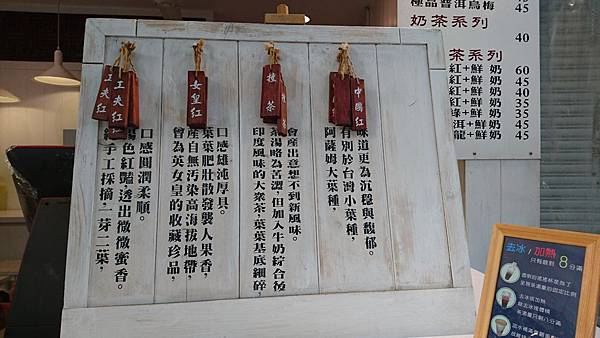 中國紅
阿薩姆大葉種，
有別於台灣小葉種，
味道更為沉穩與馥郁。
揉茶
印度風味的大眾茶，葉葉基底細碎，
茶湯略為苦澀，但加入牛奶綜合後
會産出意想不到新風味。
女皇紅
曾為英女皇的收藏珍品，
産自無汚染高海拔地帶，
葉葉肥壯散發嬰人果香，
口感雄沌厚具。
工夫紅
手工採摘，一芽二葉，
色紅豔透出微微蜜香。
口感圓潤柔順。
極品普洱烏梅 45
奶茶系列
40
茶系列
紅+鮮奶 60
紅+鮮奶 45
紅+鮮奶 40
紅+鮮奶 35
綠+鮮奶 35
洱+鮮奶 45
龍+鮮奶 45
去冰/加熱
只有做到8分滿
去冰或加熱